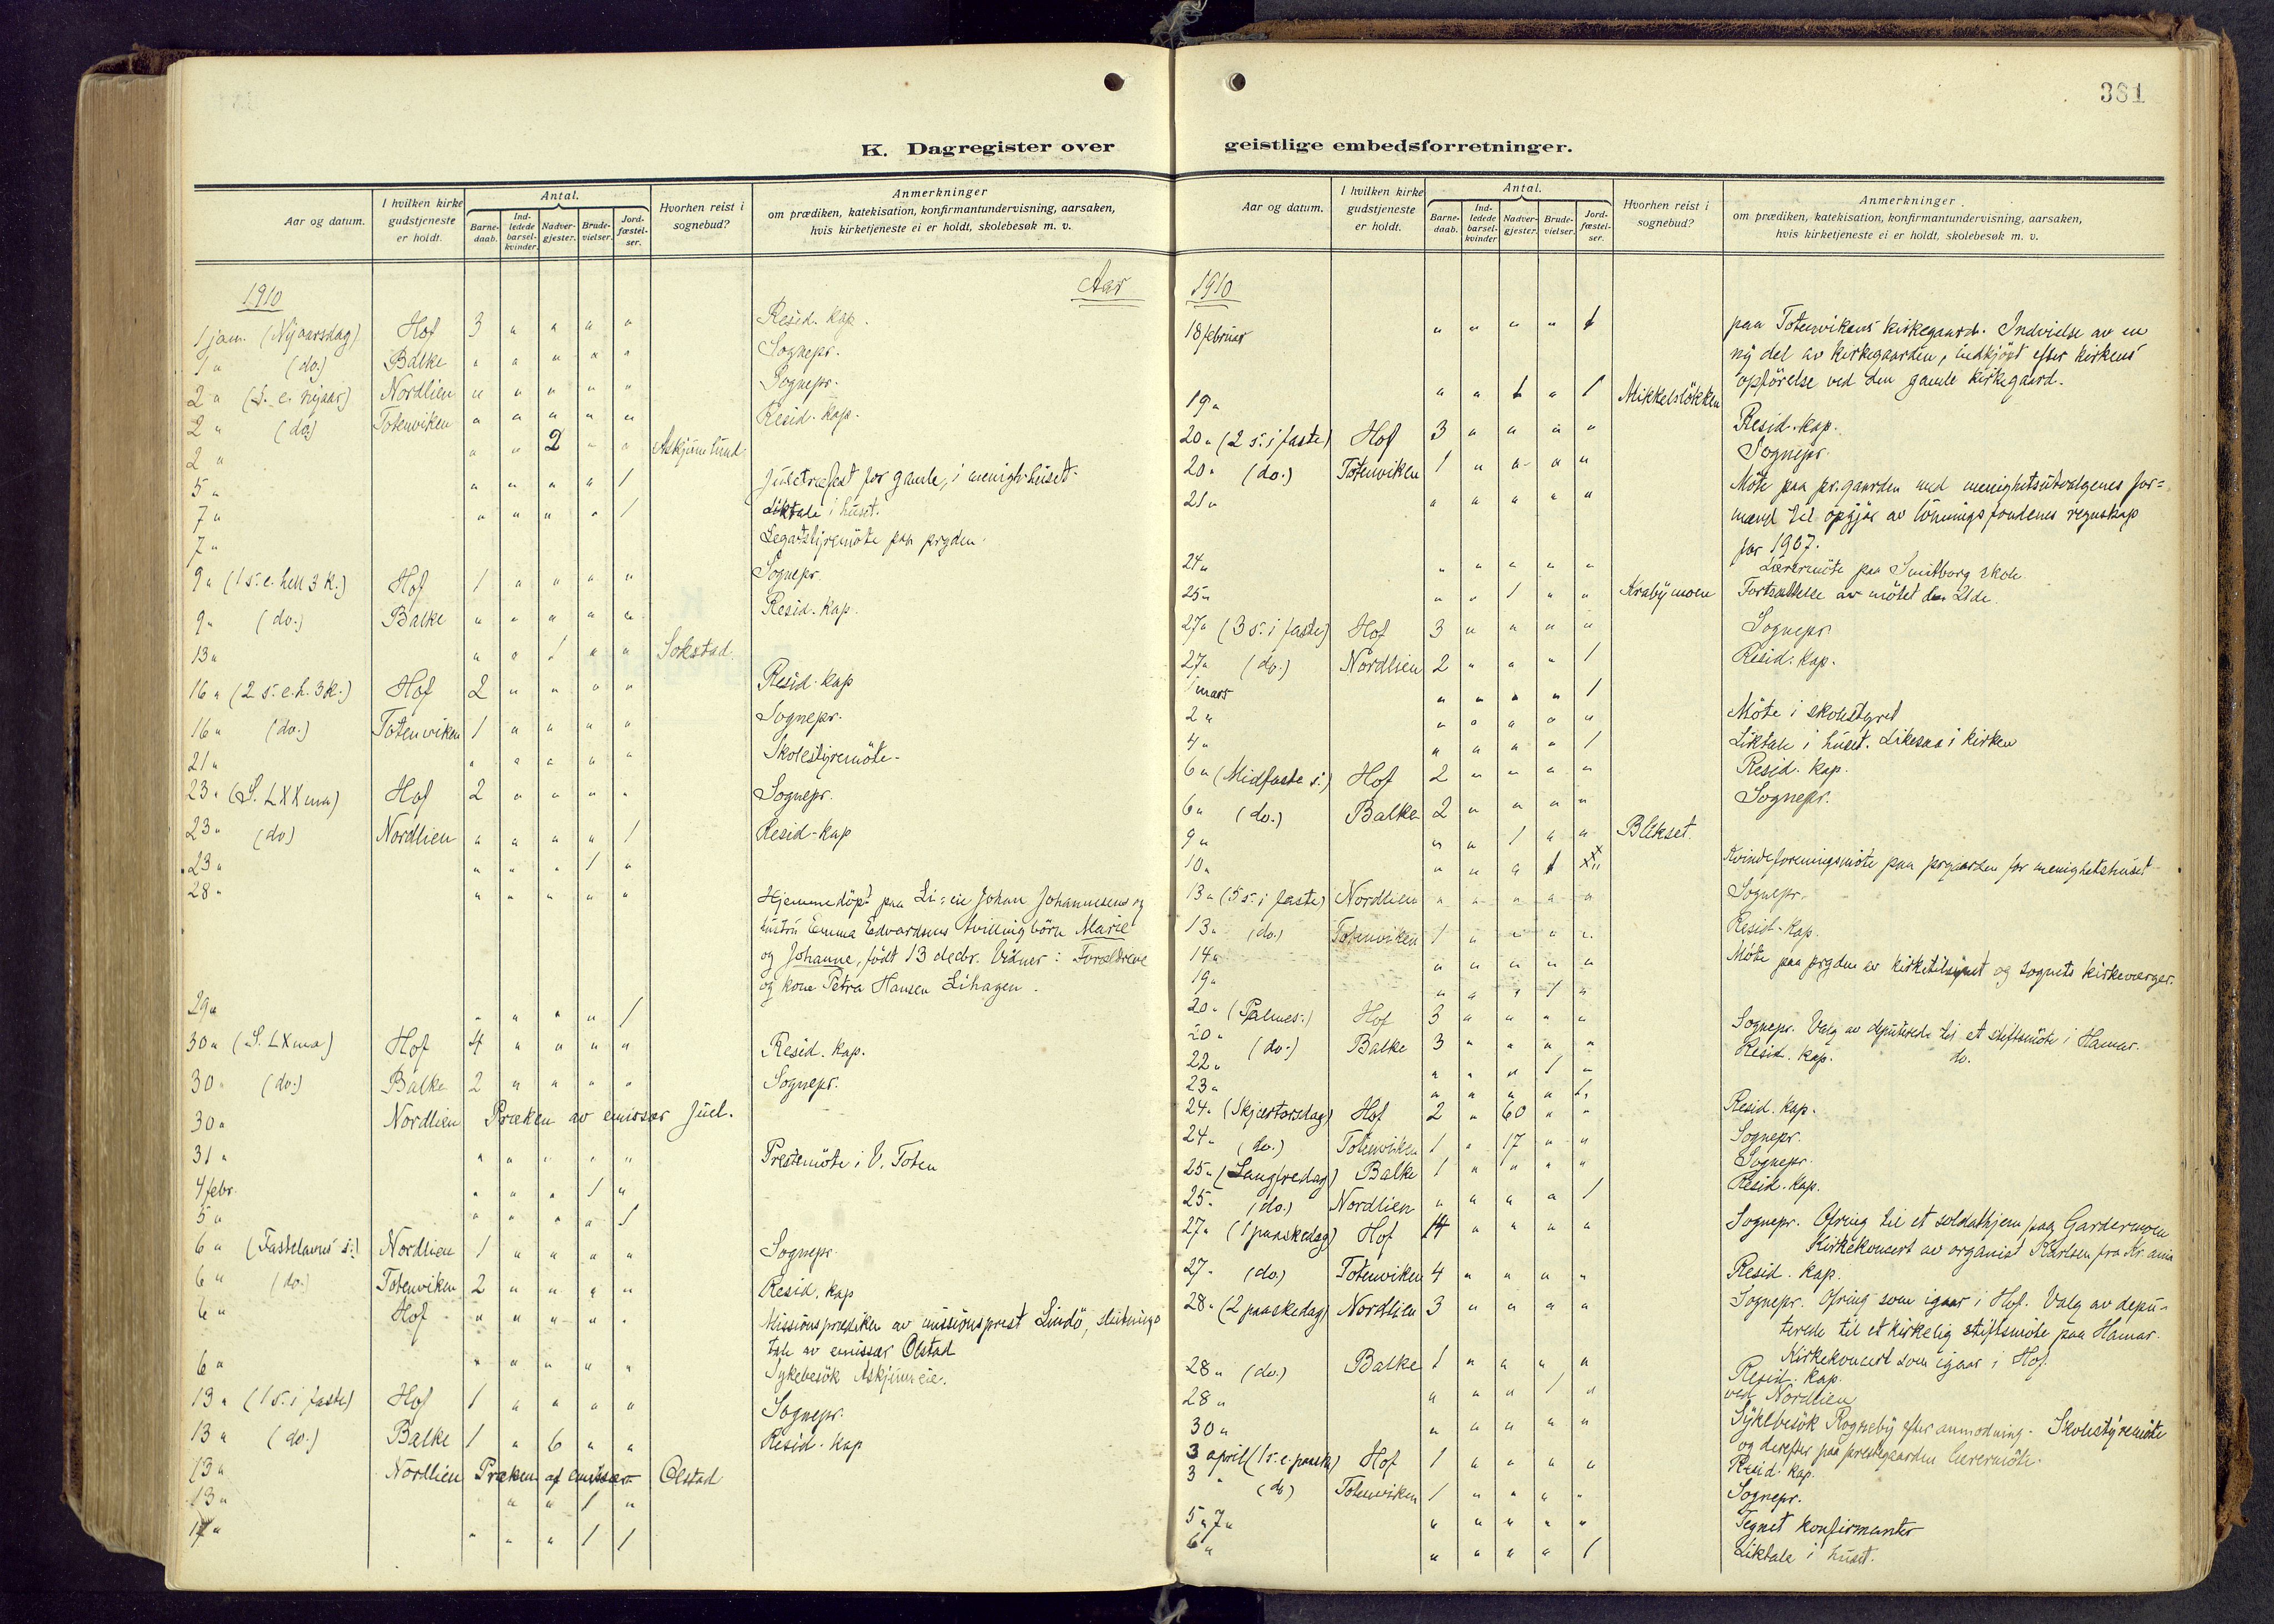 381
K. Dagregister over geistlige embedsforretninger.
Aar og datum.
I hvilken kirke gudstjeneste er holdt.
Antal.
Barnedaab.
Indledede barselkvinder
Nadvergjester.
Brudevielser.
Jordfæstelser.
Hvorhen reist i sognebud?
Anmerkninger
om prædiken, katekisation, konfirmantundervisning, aarsaken,
hvis kirketjeneste ei er holdt, skolebesøk m. v.
Aar
1910
1 jan. (Nyaarsdag) Hof 3 " " " " Resid. kap.
1 " (do.) Balke " " " " " Sognepr.
2 " (S. e. nyaar) Nordlien " " " " " Sognepr.
2 " (do) Totenviken " " " " " Resid. kap.
2 " " " 2 " " Askjumlund
5 " " " " " 1 Juletræfest for gamle, i menigh.huset.
7 " " " " " 1 Liktale i huset.
7 " Legatstyremöte paa prgden.
9 " (1 s. e. hell 3 k.) Hof 1 " " " " Sognepr.
9 " (do.) Balke " " " " " Resid. kap.
13 " " " 1 " " Sokstad.
16 " (2 s. e. h. 3 k.) Hof 2 " " " " Resid. kap
16 " (do.) Totenviken 1 " " " " Sognepr.
21 " " " " " " Skolestyremöte.
23 " (S. LXXma) Hof 2 " " " " Sognepr.
23 " (do) Nordlien " " " " 1 Resid-kap
23 " " " " 1 "
28 " " " " " " Hjemmedöpt paa Li=eie Johan Johannesens og
hustru Emma Edvardsens tvillingbörn Marie
og Johanne, födt 13 decbr. Vidner: Forældrene
og kone Petra Hansen Lihagen.
29 " " " " " 1
30 " (S. LXma) Hof 4 " " " " Resid. kap.
30 " (do.) Balke 2 " " " " Sognepr.
30 " Nordlien Præken av emissær Juel.
31 " " " " " " Prestemöte i V. Toten
4 febr. " " " 1 "
5 " " " " " 1
6 " (Fastelavns s.) Nordlien 1 " " " " Sognepr.
6 " (do.) Totenviken 2 " " " " Resid. kap
6 " Hof " " " " " Missionsprædiken av missionsprest Lindö, slutnings
tale av emissær Olstad
6 " " " " " " Sykebesök Askjumeie.
13 " (1 s. i faste) Hof 1 " " " " Sognepr.
13 " (do.) Balke 1 " 6 " " Resid. kap
13 " Nordlien Præken af emissær Olstad
13 " " " 1 "
17 " " " " 1 1
1910
18 februar " " " " 1 paa Totenvikens kirkegaard. Indvielse av en
ny del av kirkegaarden, indkjöpt efter kirkens
opförelse ved den gamle kirkegaard.
19 " " " 1 " 1 Mikkelslökken
20 " (2 s. i faste) Hof 3 " " " " Resid. kap.
20 " (do.) Totenviken 1 " " " " Sognepr.
21 " " " " " " Möte paa pr.gaarden med menighetsutvalgenes for=
mænd til opgjör av lönningsfondenes regnskap
for 1907.
24 " " " " " " Lærermöte paa Smitborg skole
25 " " " 1 " " Krabymoen Fortsættelse av mötet den 21de.
27 " (3 s. i faste) Hof 3 " " " " Sognepr.
27 " (do.) Nordlien 2 " " " 1 Resid. kap.
1 mars " " " " 1
2 " " " " " " Möte i skolestyret
4 " " " " " 1 Liktale i huset. Likesaa i kirken
6 " (Midfaste s.) Hof 2 " " " " Resid. kap.
6 " (do.) Balke 2 " " " " Sognepr.
9 " " " 1 " " Blikset.
10 " " " " 1 " Kvindeforeningsmöte paa prgaarden for menighetshuset
13 " (5 s. i faste) Nordlien " " " " " Sognepr.
13 " (do.) Totenviken 1 " " " " Resid. kap.
14 " " " " " " Möte paa prgden av kirketilsynet og sognets kirkeværger.
19 " " " " 1 "
20 " (Palmes.) Hof 3 " " " " Sognepr. Valg av deputerede til et stiftsmöte i Hamar.
20 " (do.) Balke 3 " " " " Resid. kap. do.
22 " " " " 1 "
23 " " " " " 1
24 " (Skjærtorsdag) Hof 2 " 60 " " Resid. kap.
24 " (do.) Totenviken 1 " 17 " " Sognepr.
25 " (Langfredag) Balke 1 " " " " Sognepr.
25 " (do.) Nordlien " " " " 1 Resid. kap.
27 " (1 paaskedag) Hof 14 " " " " Sognepr. Ofring til et soldathjem paa Gardermoen
Kirkekoncert av organist Karlsen fra Kr.ania
27 " (do) Totenviken 4 " " " " Resid. kap.
28 " (2 paaskedag) Nordlien 3 " " " " Sognepr. Ofring som igaar i Hof. Valg av depu=
terede til et kirkelig stiftsmöte paa Hamar.
Kirkekoncert som igaar i Hof.
28 " (do.) Balke 1 " " " " Resid. kap.
28 " " " " 1 " ved Nordlien
30 " " " " " " Sykebesök Rogneby efter anmodning. Skolestyremöte
og derefter paa prestegaarden lærermöte.
3 april (1 s. e. paaske) Hof 1 " " " " Resid. kap.
3 " (do) Totenviken 1 " " " " Sognepr.
5 " 7 " " " " " " Tegnet konfirmanter
6 " " " " " 1 Liktale i huset.